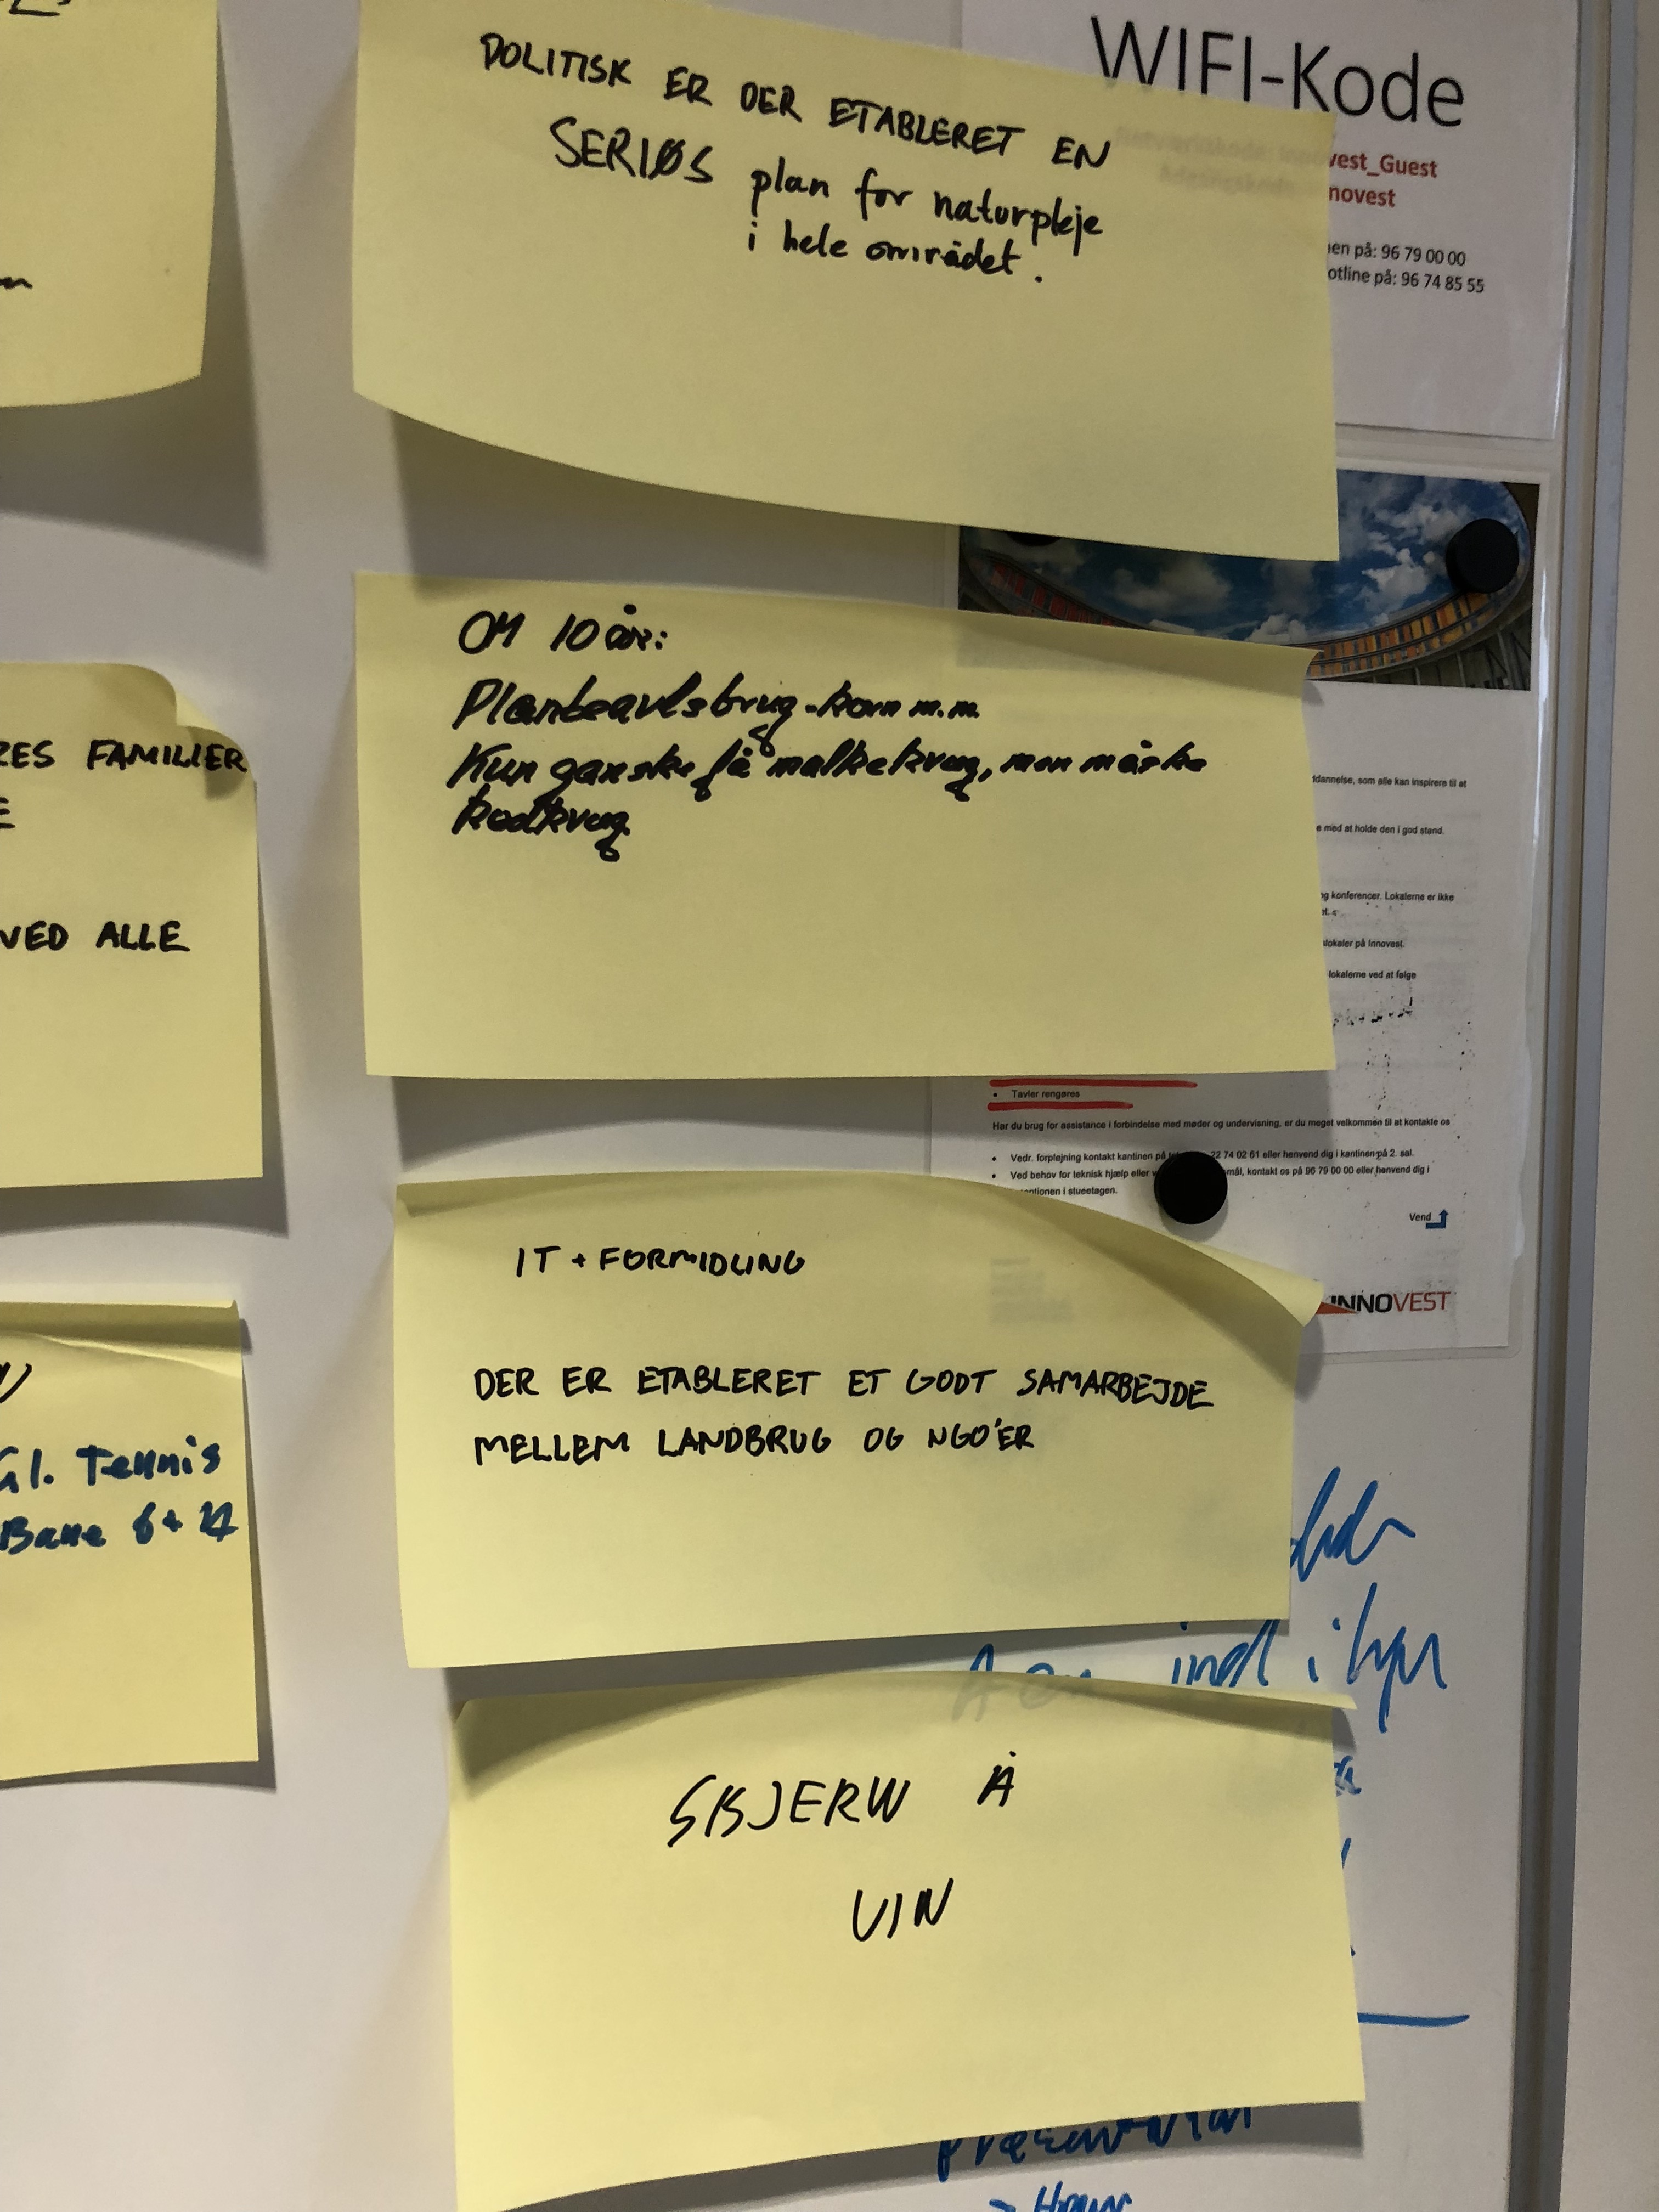 POLITISK ER DER ETABLERET EN
SERIØS plan for naturpleje
i hele området.
OM 10 år:
Planteavlsbrug - korn m.m.
Kun ganske få malkekvæg, men måske
kødkvæg.
IT + FORMIDLING
DER ER ETABLERET ET GODT SAMARBEJDE
MELLEM LANDBRUG OG NGO'ER
SKJERN Å
VIN
FAMILIER
VED ALLE
Gl. Tennis
Bane
WIFI-Kode
vest_Guest
novest
en på: 96 79 00 00
otline på: 96 74 85 55
ddannelse, som alle kan inspirere til at
e med at holde den i god stand.
og konferencer. Lokalerne er ikke
et.
lokaler på Innovest.
lokalerne ved at følge
• Tavler rengøres
Har du brug for assistance i forbindelse med møder og undervisning, er du meget velkommen til at kontakte os
• Vedr. forplejning kontakt kantinen på 22 74 02 61 eller henvend dig i kantinen på 2. sal.
• Ved behov for teknisk hjælp eller mål, kontakt os på 96 79 00 00 eller henvend dig i
ptionen i stueetagen.
Vend
INNOVEST